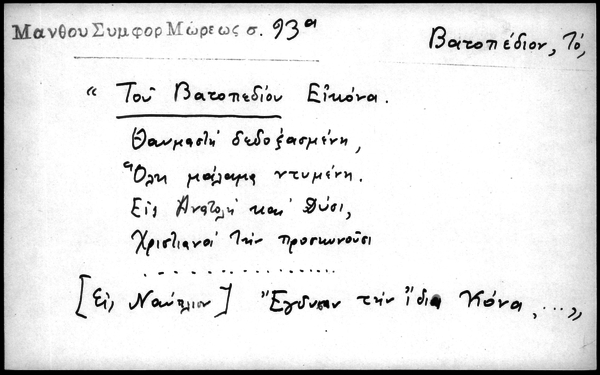 Μανθου Συμφορ Μώρεως σ. 93α
Βατοπέδιον, Τό,
“ Τοῦ Βατοπεδίου Εἰκόνα.
Θαυμαστή δεδοξασμένη,
Ὅλη μάλαμα ντυμένη.
Εἰς Ἀνατολή καί Δύσι,
Χριστιανοί τήν προσκυνοῦσι
. . . . . . . . . . . . . .
[Εἰς Ναύπλιον] “Ἔγδυσαν τήν ἴδια Κόνα, ...”